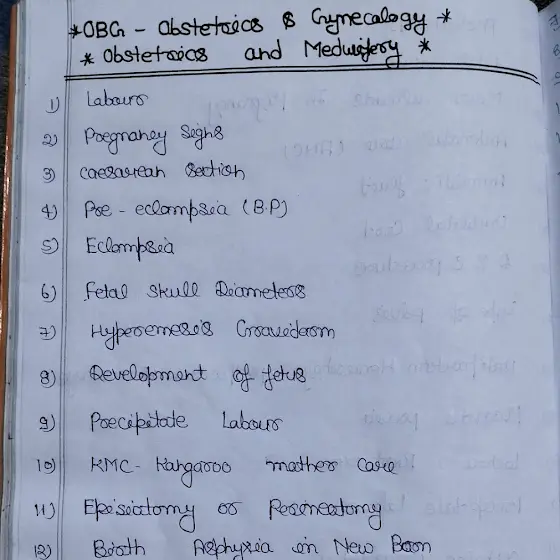 *OBG - Obstetrics & Gynecology *
* Obstetrics and Medwifery *
1) Labour
2) Pregnancy Sighs
3) caesarean Section
4) Pre - eclampsia (B.P)
5) Eclampsia
6) Fetal Skull Diameters
7) Hyperemesis Graviderm
8) Development of fetus
9) Precipitate Labour
10) KMC - Kangaroo mother care
11) Episiotomy or Perineotomy
12) Birth Asphyxia in New Born